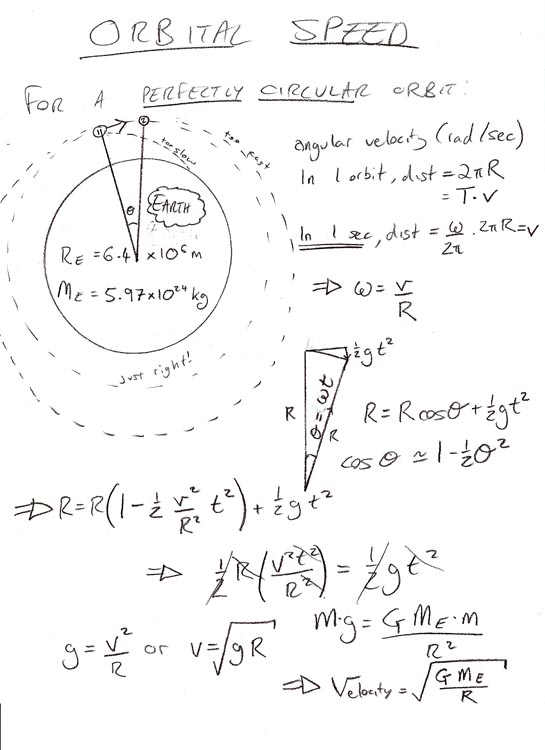 ORBITAL SPEED
FOR A PERFECTLY CIRCULAR ORBIT:
1 2
too slow
too fast
θ
EARTH
R_E = 6.4 × 10⁶ m
M_E = 5.97 × 10²⁴ kg
Just right!
angular velocity (rad/sec)
In 1 orbit, dist = 2πR
= T·v
In 1 sec, dist = ω/2π · 2πR = v
⇒ ω = v/R
½gt²
R
θ = ωt
R
R = R cos θ + ½gt²
cos θ ≃ 1 - ½θ²
⇒ R = R(1 - ½ v²/R² t²) + ½gt²
⇒ ½ R (v²t²/R²) = ½ g t²
g = v²/R or v = √gR
m·g = G M_E·m/R²
⇒ Velocity = √(G M_E/R)